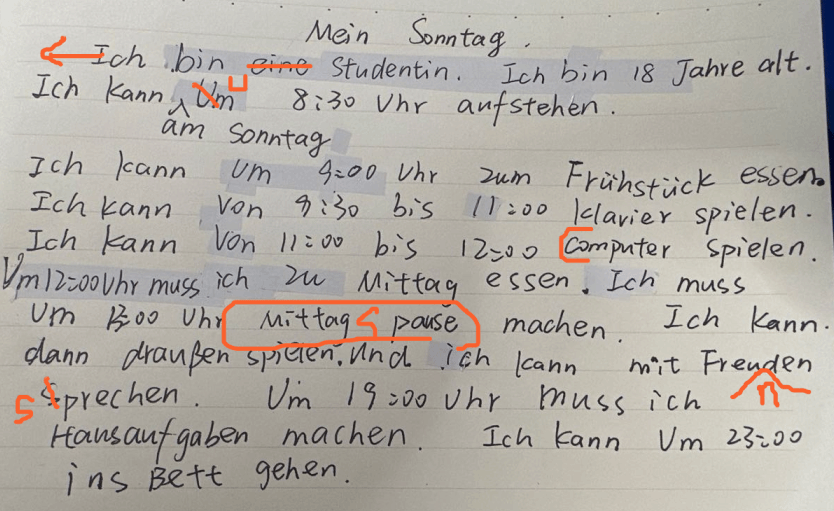 Mein Sonntag.
Ich bin eine Studentin. Ich bin 18 Jahre alt.
Ich kann Um u 8:30 Uhr aufstehen.
am Sonntag
Ich kann Um 9:00 Uhr zum Frühstück essen.
Ich kann Von 9:30 bis 11:00 klavier spielen.
Ich kann Von 11:00 bis 12:00 Computer spielen.
Um 12:00 Uhr muss ich zu Mittag essen. Ich muss
Um 13:00 Uhr Mittag pause machen. Ich kann.
dann draußen spielen. Und ich kann mit Freuden
n
s sprechen. Um 19:00 Uhr muss ich
Hausaufgaben machen. Ich kann Um 23:00
ins Bett gehen.